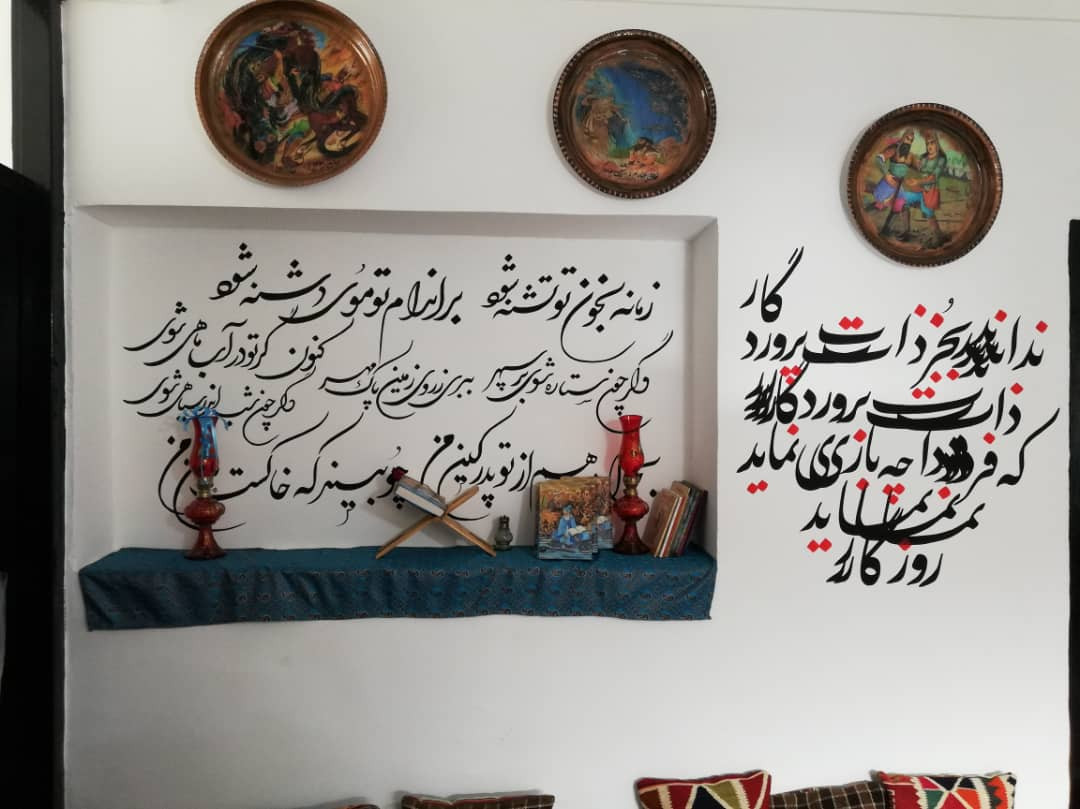 زمانه بخون تو تشنه شود براندام تو موی دشنه شود
کنون گر تو در آب ماهی شوی
وگر چون شب اندر سیاهی شوی
وگر چون ستاره شوی بر سپهر ببری ز روی زمین پاک مهر
هم از تو پدر کین من چو بیند که خاکست من
نداند بجز ذات پروردگار
ذات پروردگار
که فردا چه بازی نماید
نماید
روزگار